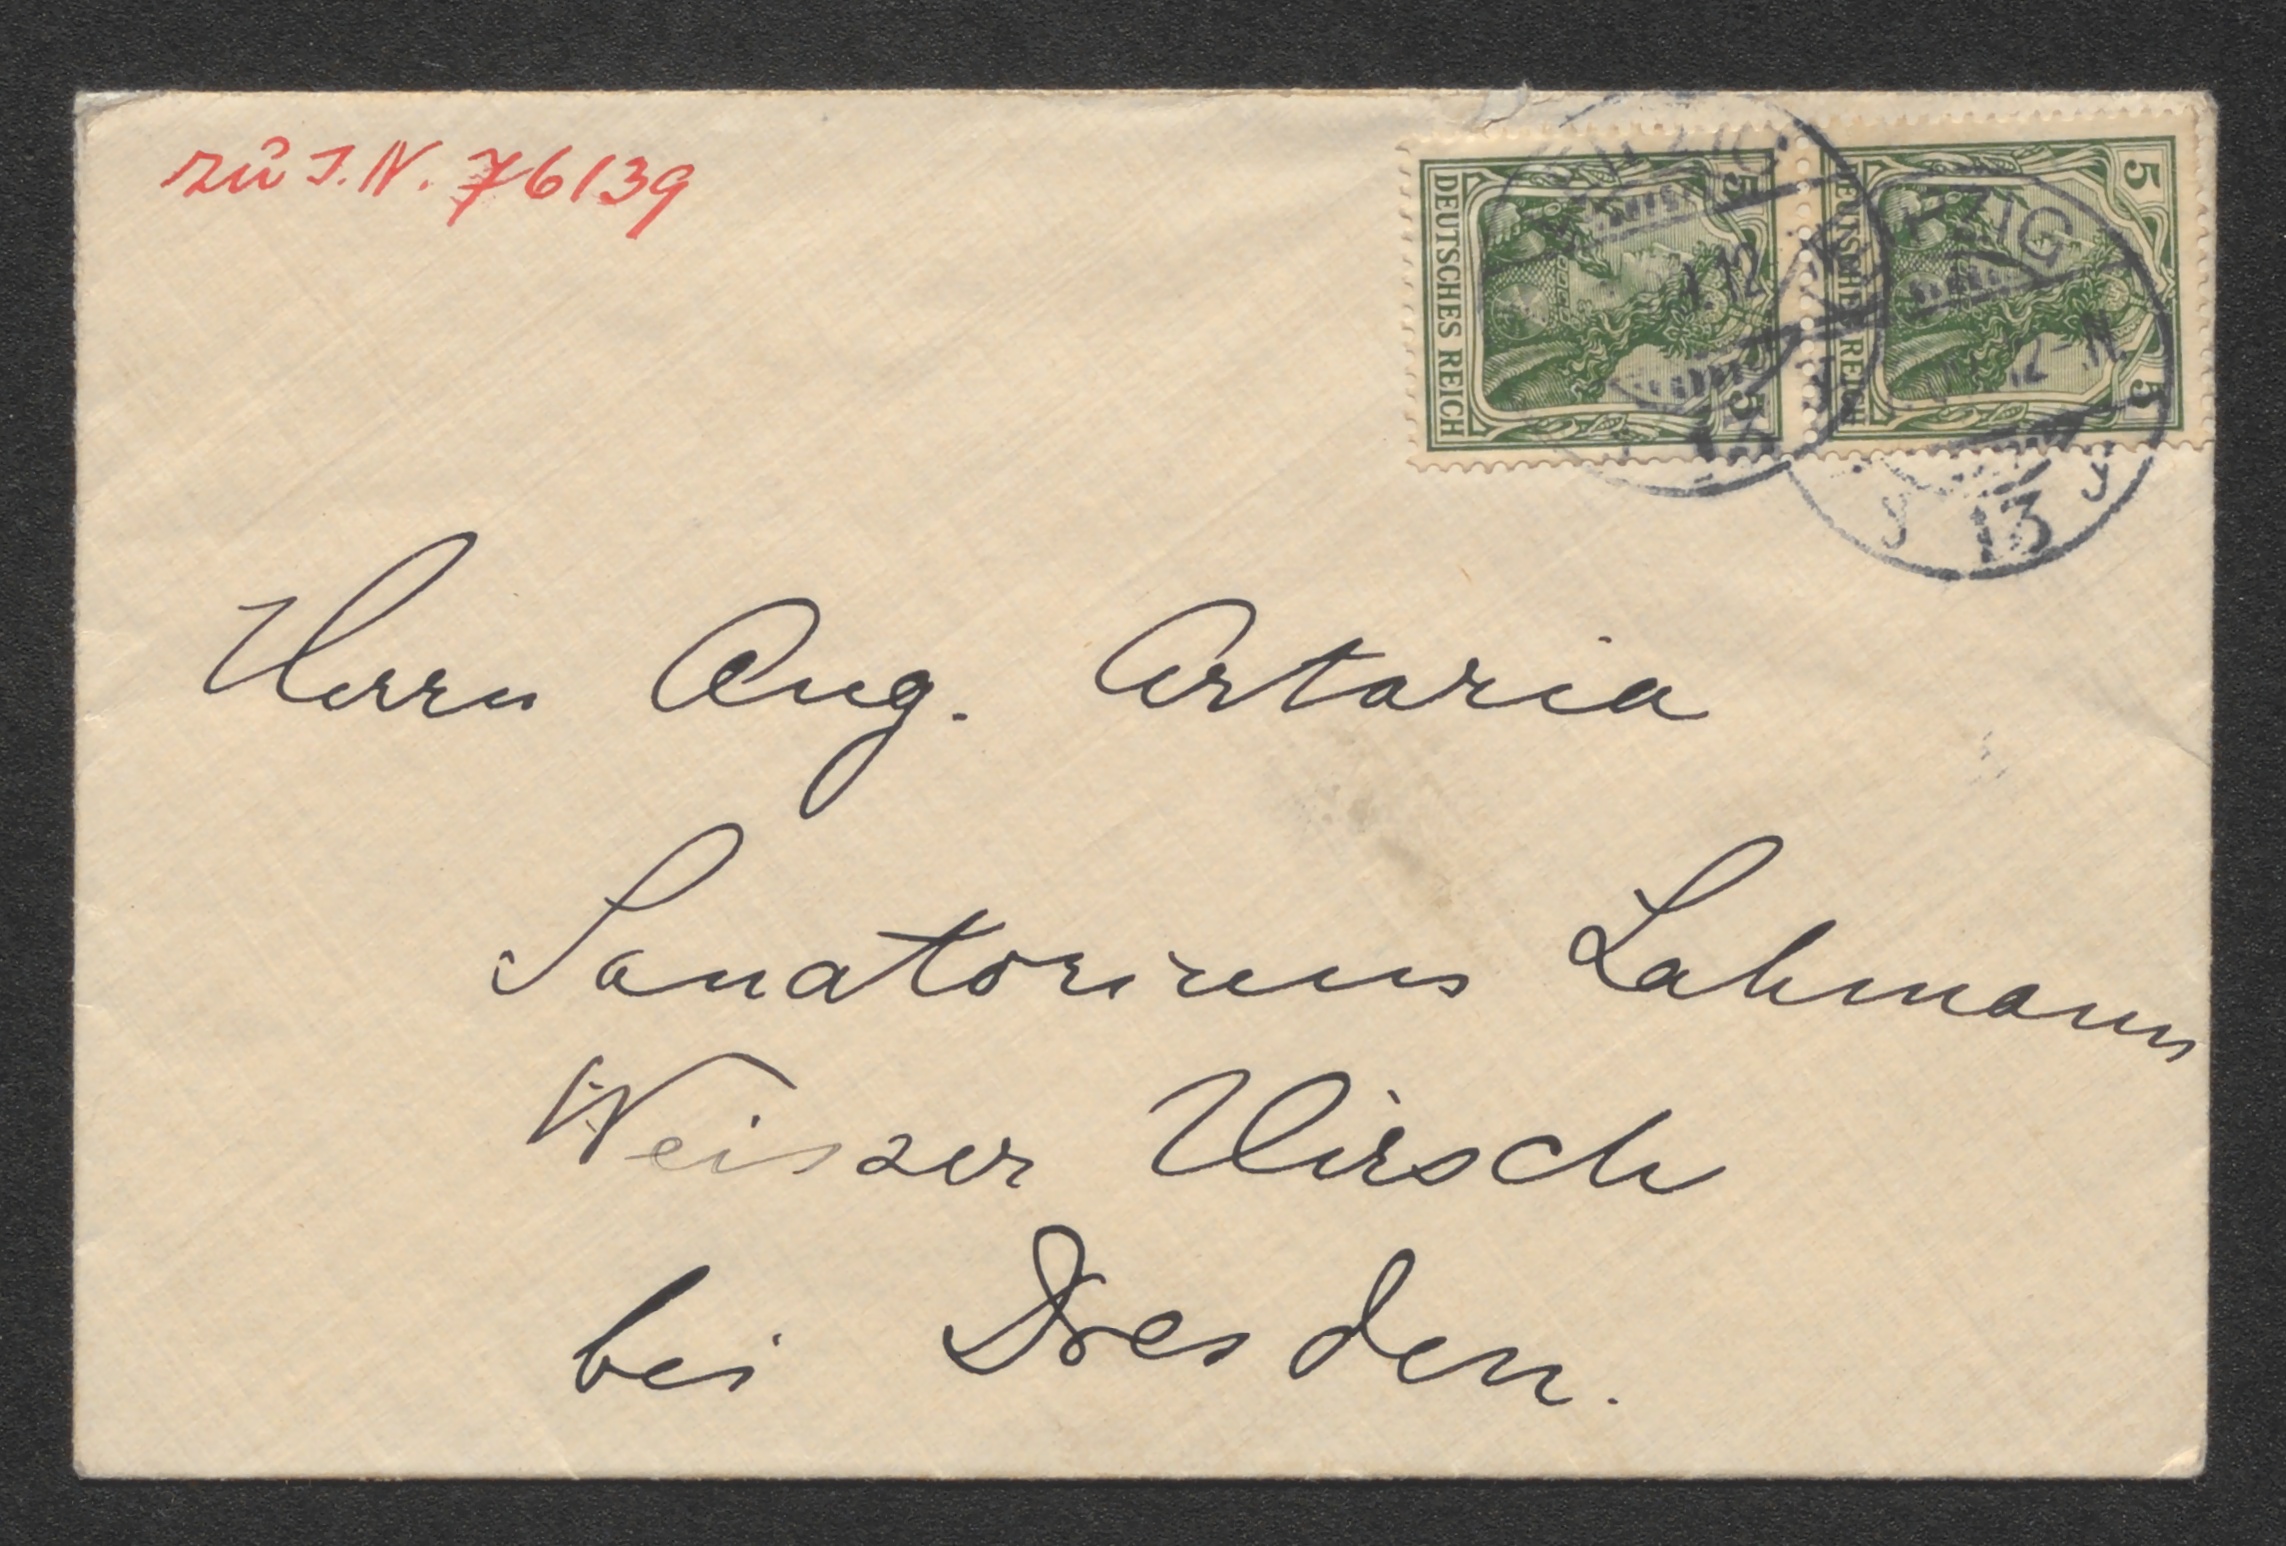 zu I. N. 76139
5 5
DEUTSCHES REICH
5 5
DEUTSCHES REICH
13
Herrn Aug. Artaria
Sanatorium Lahmann
Weisser Hirsch
bei Dresden.